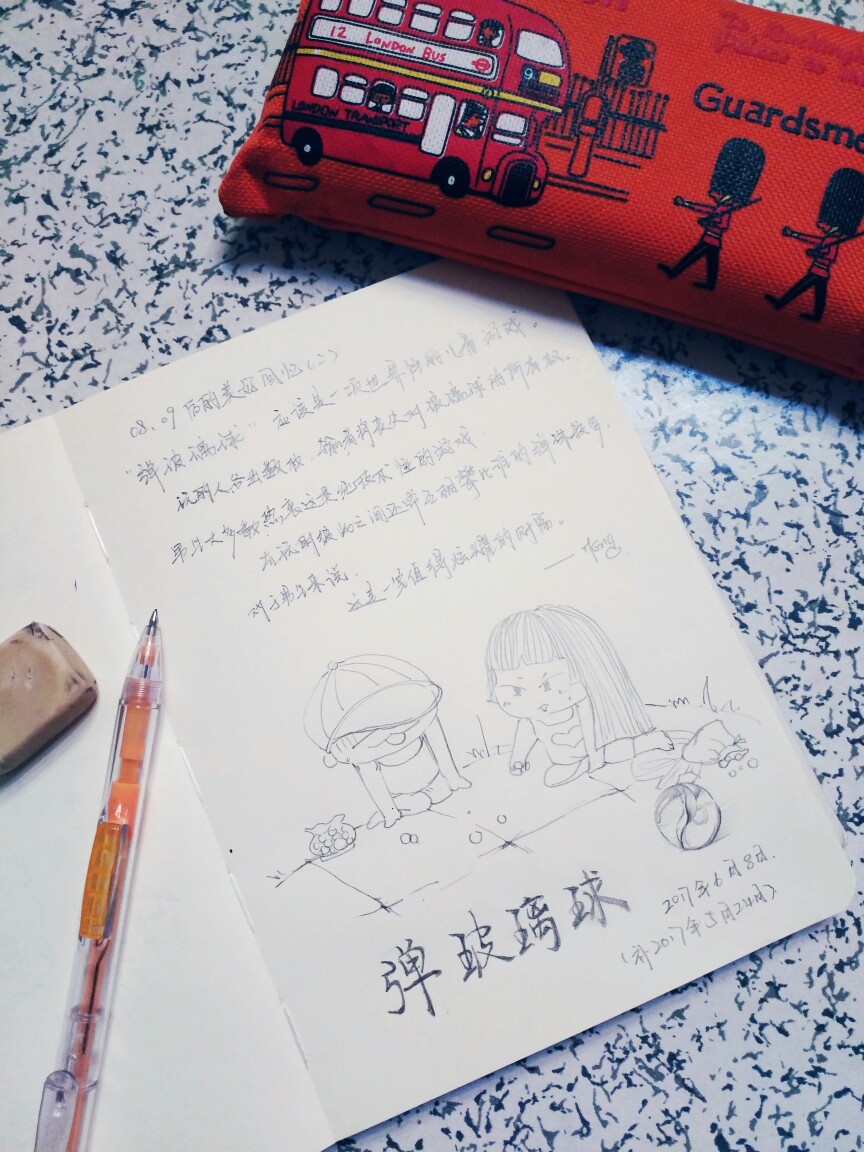 12 LONDON BUS
9
LONDON TRANSPORT
Guardsm
08、09后的美好回忆(二)
"弹玻璃球" 应该是一项世界性的儿童游戏。
玩的人各出数枚,输者将丧失对玻璃球的所有权。
男生大多数热衷这类见技术性的游戏
在玩的 之间还单互相攀比谁的弹珠较多,
对于男生来说, 这是一笔值得炫耀的财富。
弹玻璃球
2017年6月8日.
(补2017年5月24日)